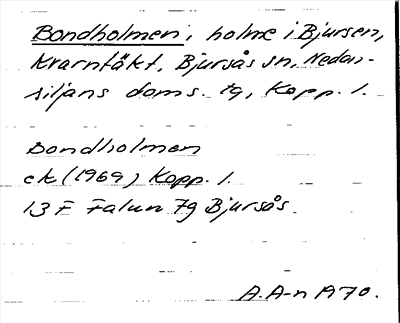 Bondholmen, holme i Bjursen,
Kvarntäkt, Bjursås sn, Nedan-
siljans doms. tg, Kopp. l.
Bondholmen
ek (1969) Kopp. l.
13F Falun 7g Bjursås
A.A-n 1970.